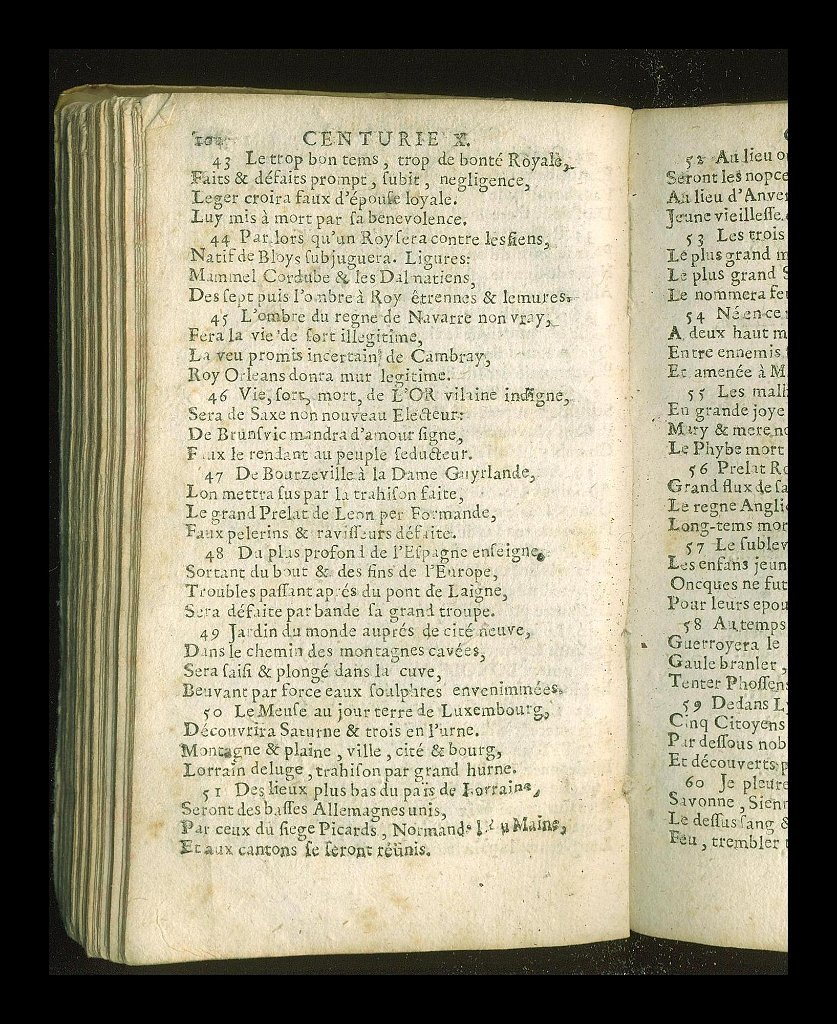 CENTURIE X.
43 Le trop bon tems, trop de bonté Royale,
Faits & défaits prompt, subit, negligence,
Leger croira faux d'épouse loyale.
Luy mis à mort par sa benevolence.
44 Par lors qu'un Roy sera contre les siens,
Natif de Bloys subjuguera. Ligures:
Mammel Cordube & les Dalmatiens,
Des sept puis l'ombre à Roy êtrennes & lemures.
45 L'ombre du regne de Navarre non vray,
Fera la vie de sort illegitime,
La veu promis incertain de Cambray,
Roy Orleans donra mur legitime.
46 Vie, sort, mort, de L'OR vilaine indigne,
Sera de Saxe non nouveau Electeur:
De Brunsvic mandra d'amour signe,
Faux le rendant au peuple seducteur.
47 De Bourzeville à la Dame Guyrlande,
Lon mettra sus par la trahison faite,
Le grand Prelat de Leon per Formande,
Faux pelerins & ravisseurs défaite.
48 Du plus profond de l'Espagne enseigne,
Sortant du bout & des fins de l'Europe,
Troubles passant aprés du pont de Laigne,
Sera défaite par bande sa grand troupe.
49 Jardin du monde auprés de cité neuve,
Dans le chemin des montagnes cavées,
Sera saisi & plongé dans la cuve,
Beuvant par force eaux soulphres envenimmées.
50 Le Meuse au jour terre de Luxembourg,
Découvrira Saturne & trois en l'urne.
Montagne & plaine, ville, cité & bourg,
Lorrain deluge, trahison par grand hurne.
51 Des lieux plus bas du païs de Lorraine,
Seront des basses Allemagnes unis,
Par ceux du siege Picards, Normands Maine,
Et aux cantons se seront réünis.
52 Au lieu
Seront les nopce
Au lieu d'Anve
Jeune vieillesse
53 Les trois
Le plus grand m
Le plus grand S
Le nommera fe
54 Née en ce
A deux haut m
Entre ennemis
Et amenée à M
55 Les malh
En grande joye
Mary & mere no
Le Phybe mort
56 Prelat Ro
Grand flux de sa
Le regne Angli
Long-tems mor
57 Le sublev
Les enfans jeun
Oncques ne fut
Pour leurs epou
58 Au temps
Guerroyera le
Gaule branler,
Tenter Phossens
59 Dedans L
Cinq Citoyens
Par dessous nob
Et découverts p
60 Je pleure
Savonne, Sienn
Le dessus sang &
Feu, trembler